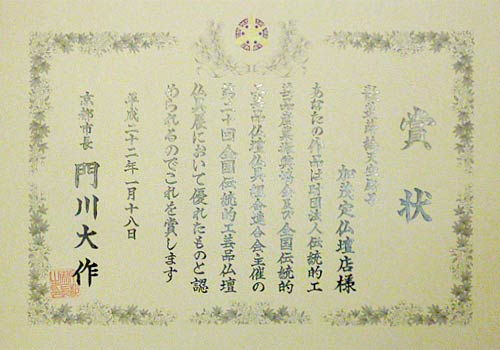 賞状
加茂定仏壇店様
あなたの作品は財団法人伝統的工
芸品産業振興協会及び全国伝統的
工芸品仏壇仏具組合連合会主催の
第二十回全国伝統的工芸品仏壇
仏具展において優れたものと認
められるのでこれを賞します
平成二十二年一月十八日
京都市長 門川大作